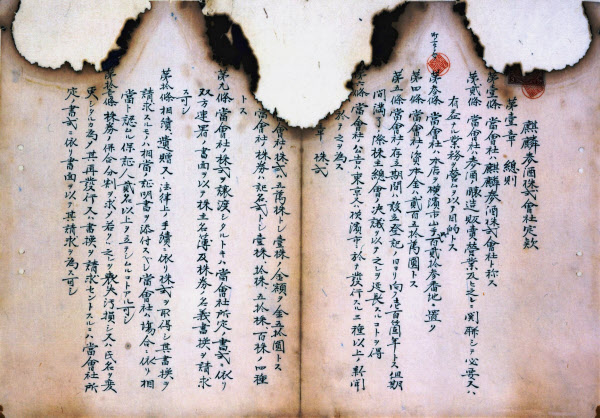 麒麟麥酒株式會社定款
第壹章　總則
第壹條　當會社ハ麒麟麥酒株式會社ト称ス
第貳條　當會社ハ麥酒醸造販賣營業及ヒ之ニ関聯シテ必要又ハ
有益ナル業務ヲ營ムヲ以テ目的トス
第參條　當會社ハ本店ヲ横濱市山手町百貳拾參番地ニ置ク
第四條　當會社ノ資本金ハ貳百五拾萬圓トス
第五條　當會社ノ存立期間ハ設立登記ノ日ヨリ向フ壱百箇年トス但期
間満了ノ際株主總會ノ決議ヲ以テ之レヲ延長スルコトヲ得
條　當會社ノ公告ハ東京及横濱市ニ於テ發行スル二種以上ノ新聞
ニ於テ之ヲ為ス
株式
會社ノ株式ハ五萬株トシ壹株ノ金額ヲ金五拾圓トス
當會社ノ株券ハ記名式トシ壹株拾株五拾株百株ノ四種
トス
第九條　當會社ノ株式ヲ譲渡シタルトキハ當會社所定ノ書式ニ依リ
双方連署ノ書面ヲ以テ株主名簿及株券ノ名義書換ヲ請求
スヘシ
第拾條　相續遺贈又ハ法律上ノ手續ニ依リ株式ヲ取得シ其書換ヲ
請求スルモノハ相當ノ証明書ヲ添付スヘシ當會社ハ場合ニ依リ相
當ト認ムル保証人貳名以上ヲ立テシムルコトアル可シ
條　株券ノ併合分割ヲ求メ若クハ之ヲ喪失汚損シ又ハ氏名ヲ変
更シタルカ為メ其再發行又ハ書換ヲ請求セントスルモノハ當會社所
定ノ書式ニ依リ書面ヲ以テ其請求ヲ為ス可シ